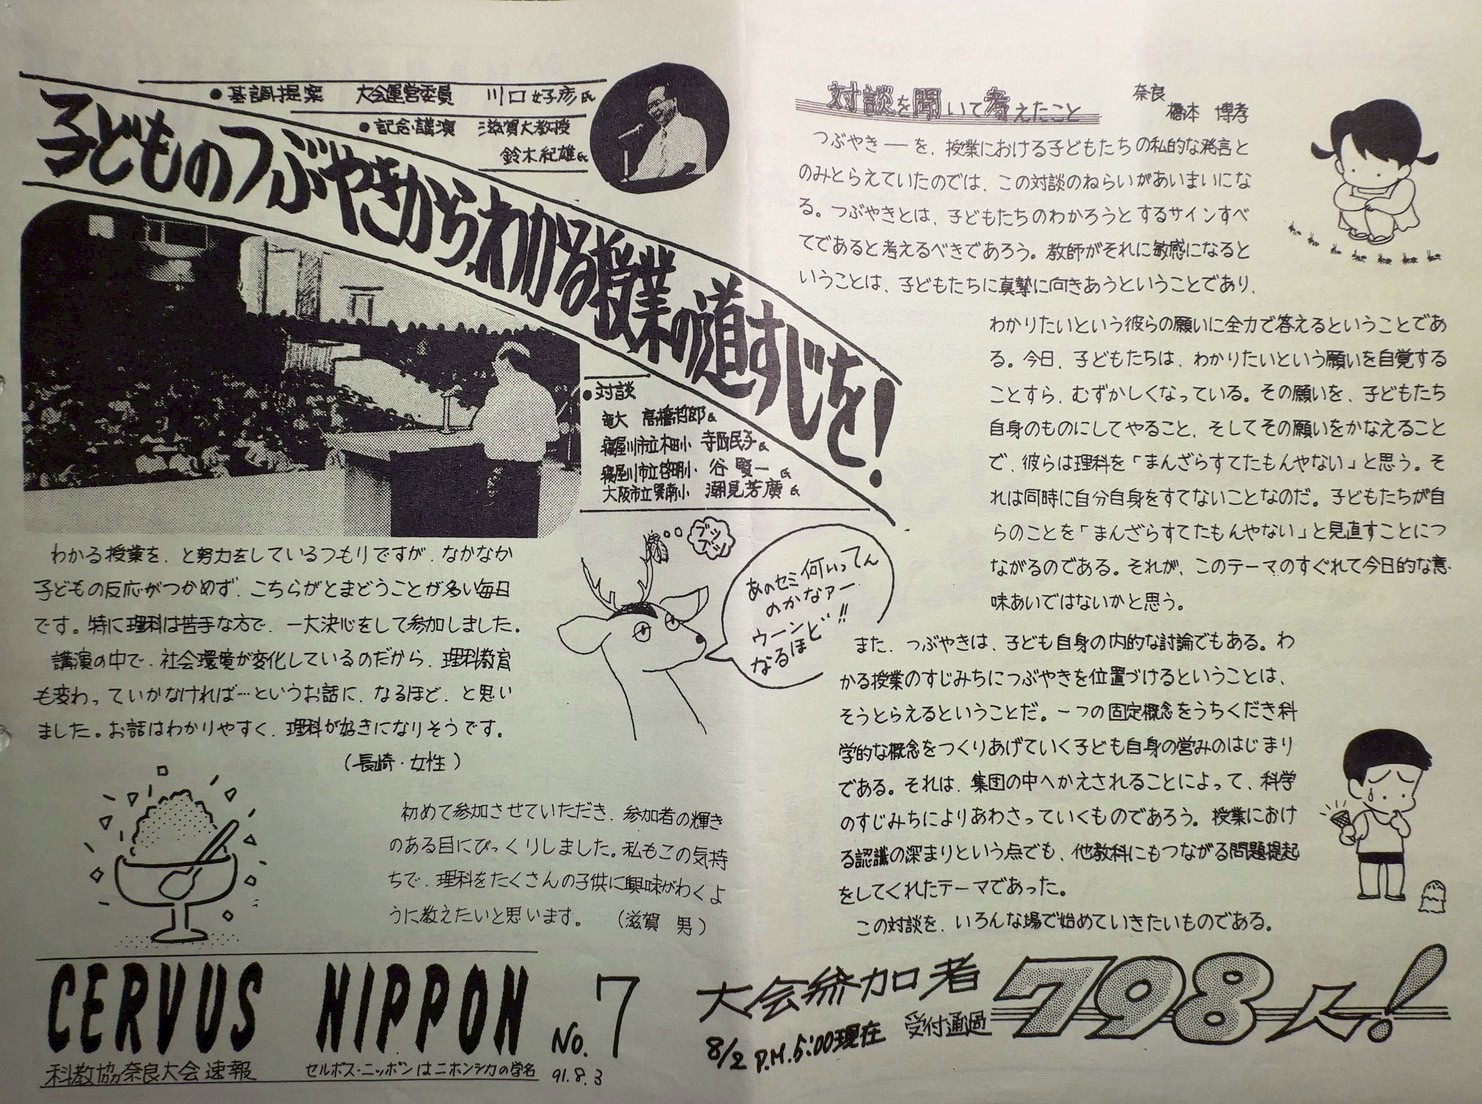 ●基調提案 大会運営委員 川口好彦氏
●記念講演 滋賀大教授
鈴木紀雄氏
子どものつぶやきから、わかる授業の道すじを!
●対談
奄大 高橋哲郎氏
寝屋川市立木田小 寺西民子氏
寝屋川市立啓明小 谷賢一氏
大阪市立巽南小 潮見芳廣氏
わかる授業を、と努力をしているつもりですが、なかなか
子どもの反応がつかめず、こちらがとまどうことが多い毎日
です。特に理科は苦手な方で、一大決心をして参加しました。
講演の中で、社会環境が変化しているのだから、理科教育
も変わっていかなければ…というお話に、なるほど、と思い
ました。お話はわかりやすく、理科が好きになりそうです。
(長崎・女性)
ブツブツ
あのセミ何いってん
のかなァー
ウーンと
なるほど!!
初めて参加させていただき、参加者の輝き
のある目にびっくりしました。私もこの気持
ちで、理科をたくさんの子供に興味がわくよ
うに教えたいと思います。 (滋賀 男)
CERVUS NIPPON No.7
科教協奈良大会速報 セルボス・ニッポンはニホンジカの学名 91.8.3
対談を聞いて考えたこと
奈良
橋本 博孝
つぶやき――を、授業における子どもたちの私的な発言と
のみとらえていたのでは、この対談のねらいがあいまいにな
る。つぶやきとは、子どもたちのわかろうとするサインすべ
てであると考えるべきであろう。教師がそれに敏感になると
いうことは、子どもたちに真摯に向きあうということであり、
わかりたいという彼らの願いに全力で答えるということであ
る。今日、子どもたちは、わかりたいという願いを自覚する
ことすら、むずかしくなっている。その願いを、子どもたち
自身のものにしてやること、そしてその願いをかなえること
で、彼らは理科を「まんざらすてたもんやない」と思う。そ
れは同時に自分自身をすてないことなのだ。子どもたちが自
らのことを「まんざらすてたもんやない」と見直すことにつ
ながるのである。それが、このテーマのすぐれて今日的な意
味あいではないかと思う。
また、つぶやきは、子ども自身の内的な討論でもある。わ
かる授業のすじみちにつぶやきを位置づけるということは、
そうとらえるということだ。一つの固定概念をうちくだき科
学的な概念をつくりあげていく子ども自身の営みのはじまり
である。それは、集団の中へかえされることによって、科学
のすじみちによりあわさっていくものであろう。授業におけ
る認識の深まりという点でも、他教科にもつながる問題提起
をしてくれたテーマであった。
この対談を、いろんな場で始めていきたいものである。
大会参加者 798人!
8/2 P.M.5:00現在 受付通過